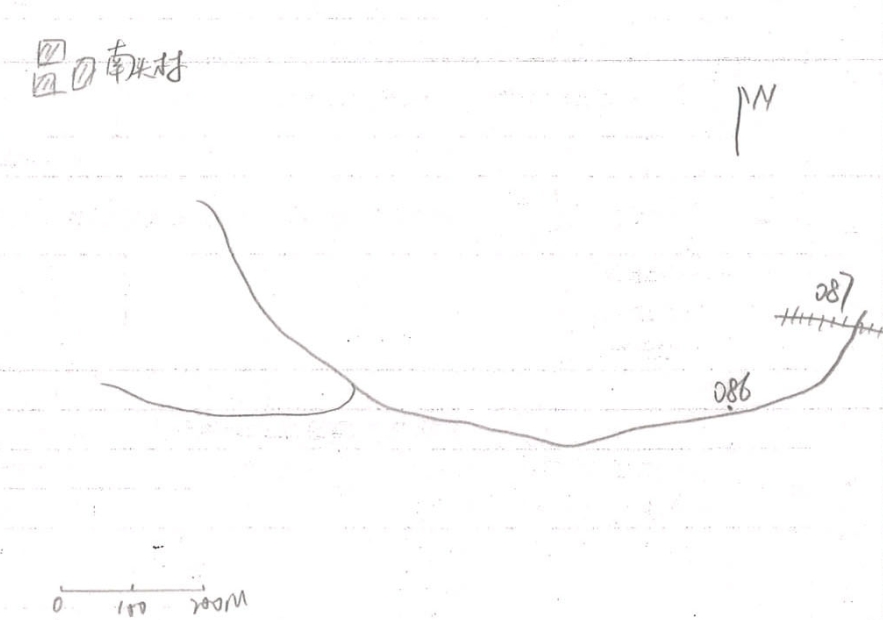 南头村
N
087
086
0 100 200M